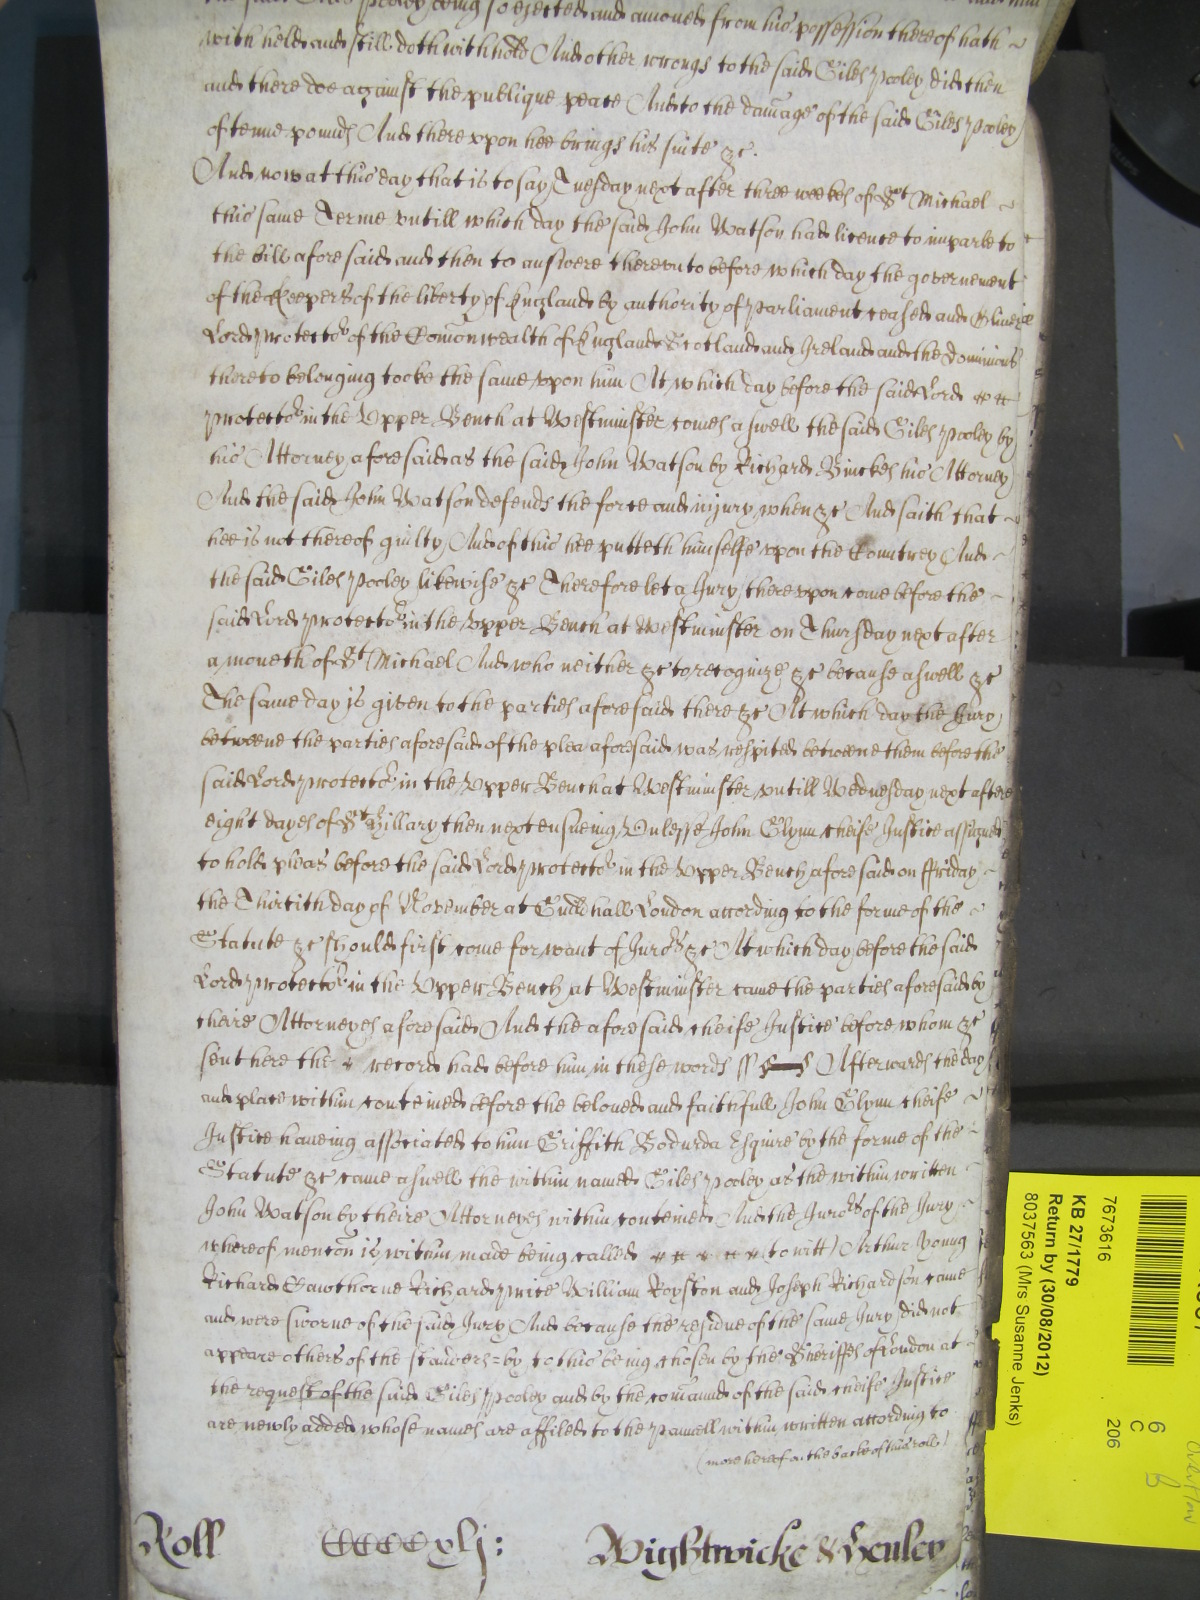 the said Giles Pooley being so ejected and amoved from his possession thereof hath
with held and still doth withhold And other wrongs to the said Giles Pooley did then
and there doe against the publique peace And to the damage of the said Giles Pooley
of tenne pounds And there vpon hee brings his suite &c.
And now at this day that is to say Tuesday next after three weekes of St Michael
this same Terme vntill which day the said John Watson had licence to imparle to
the bill afore said and then to answere therevnto before which day the governement
of the Keepers of the liberty of England by authority of Parliament ceased and Oliver
Lord Protector of the Comonwealth of England Scotland and Ireland and the dominions
thereto belonging tooke the same vpon him At which day before the said Lord
Protector in the Vpper Bench at Westminster comes aswell the said Giles Pooley by
his Attorney aforesaid as the said John Watson by Richard Binckes his Attorney
And the said John Watson defends the force and injury when &c And saith that
hee is not thereof guilty And of this hee putteth himselfe vpon the Countrey And
the said Giles Pooley likewise &c Therefore let a Jury there vpon come before the
said Lord Protector in the Vpper Bench at Westminster on Thursday next after
a moneth of St Michael And who neither &c to recognize &c because aswell &c
The same day is given to the parties aforesaid there &c At which day the Jury
betweene the parties aforesaid of the plea aforesaid was respited betweene them before the
said Lord Protector in the Vpper Bench at Westminster vntill Wednesday next after
eight dayes of St Hillary then next ensueing Vnlesse John Glynn cheife Justice assigned
to hold pleas before the said Lord Protector in the Vpper Bench aforesaid on ffriday
the Thirtith day of November at Guildhall London according to the forme of the
Statute &c should first come for want of Jurors &c At which day before the said
Lord Protector in the Vpper Bench at Westminster came the parties aforesaid by
theire Attorneyes aforesaid And the aforesaid cheife Justice before whom &c
sent here the record had before him in these words ss Afterwards the day
and place within conteined before the beloved and faithfull John Glynn cheife
Justice haveing associated to him Griffith Bodurda Esquire by the forme of the
Statute &c came aswell the within named Giles Pooley as the within written
John Watson by theire Attorneyes within conteined And the Jurors of the Jury
whereof mencon is within made being called (to witt) Arthur Young
Richard Hawthorne Richard Price William Royston and Joseph Richardson came
and were sworne of the said Jury And because the residue of the same Jury did not
appeare others of the standers=by to this being chosen by the Sheriffes of London at
the request of the said Giles Pooley and by the comaund of the said cheife Justice
are newly added whose names are affiled to the Pannell within written according to
(more hereof on the backe of this roll)
Roll CCCCxlj: Wightwicke & Henley
7673616
KB 27/1779
Return by (30/08/2012)
8037563 (Mrs Susanne Jenks)
6
C
206
overflow
B